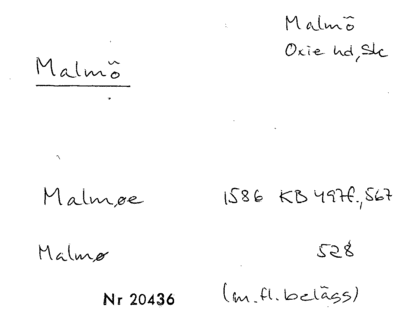 Malmö
Oxie hd, Sk
Malmö
Malmøe 1586 KB 497f., 567
Malmø 528
Nr 20436 (m.fl. belägg)